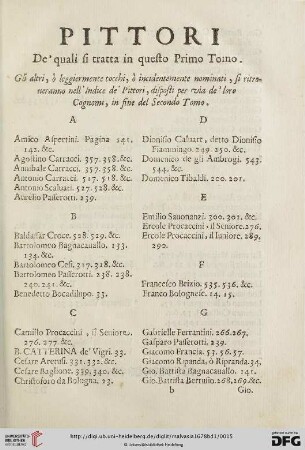 PITTORI
De' quali si tratta in questo Primo Tomo.
Gli altri, ò leggiermente tocchi, ò incidentemente nominati, si ritro-
veranno nell'Indice de' Pittori, disposti per via de' loro
Cognomi, in fine del Secondo Tomo.
A
Amico Aspertini. Pagina 141.
142. &c.
Agostino Carracci. 357. 358. &c.
Annibale Carracci. 357. 358. &c.
Antonio Carracci. 517. 518. &c.
Antonio Scaluati. 527. 528. &c.
Aurelio Passerotti. 239.
B
Baldassar Croce. 528. 529. &c.
Bartolomeo Bagnacauallo. 133.
134. &c.
Bartolomeo Cesi. 317. 318. &c.
Bartolomeo Passerotti. 238. 238.
240. 241. &c.
Benedetto Bocadilupo. 33.
C
Camillo Procaccini, il Seniore.
276. 277. &c.
B. CATTERINA de' Vigri. 33.
Cesare Aretusi. 331. 332. &c.
Cesare Baglione. 339. 340. &c.
Christoforo da Bologna. 23.
D
Dionisio Caluart, detto Dionisio
Fiammingo. 249. 250. &c.
Domenico de gli Ambrogi. 543.
544. &c.
Domenico Tibaldi. 200. 201.
E
Emilio Sauonanzi. 300. 301. &c.
Ercole Procaccini, il Seniore. 276.
Ercole Procaccini, il Iuniore. 289,
290.
F
Francesco Brizio. 535. 536. &c.
Franco Bolognese. 14. 15.
G
Gabrielle Ferrantini. 266. 267.
Gasparo Passerotti. 239.
Giacomo Francia. 53. 56. 57.
Giacomo Ripanda, ò Ripranda. 34.
Gio. Battista Bagnacauallo. 141.
Gio. Battista Bertusio. 268. 269. &c.
b Gio.
http://digi.ub.uni-heidelberg.de/diglit/malvasia1678bd1/0015
© Universitätsbibliothek Heidelberg
UNIVERSITÄTS-
BIBLIOTHEK
HEIDELBERG
gefördert durch die
DFG